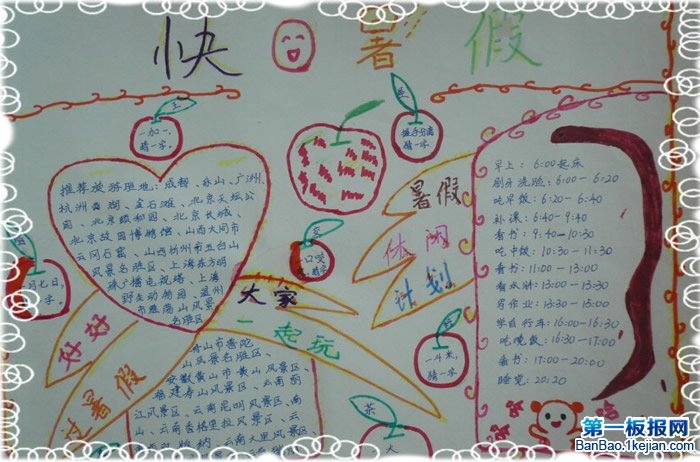 快 暑 假
王
一加一,
猜一字。
是
握手分离
猜一字。
推荐旅游胜地:成都、乐山、广州、
杭州西湖、金石滩、北京天坛公
园、北京颐和园、北京长城、
北京故园博物馆、山西大同市
云冈石窟、山西忻州市五台山
风景名胜区、上海东方明
珠广播电视塔、上海
野生动物园、温州
市雁荡山风景
名胜区
玄
一口哭
猜一字
月七日,
字。
好好
过暑假
大家
一起玩
舟山市普陀
山风景名胜区、
安徽黄山市黄山风景区、
福建泰山风景区、云南丽
江风景区、云南昆明风景区、南
山、云南香格里拉风景区、云
纳、云南大里风景
暑假
休闲
计划
一斗米,
猜一字。
茶
大
早上:6:00起床
刷牙洗脸:6:00-6:20
吃早饭:6:20-6:40
补课:6:40-9:40
看书:9:40-10:30
吃中饭:10:30-11:30
看书:11:00-13:00
看水浒:13:00-13:30
写作业:13:30-15:00
学自行车:16:00-16:30
吃晚饭:16:30-17:00
看书:17:00-20:00
睡觉:20:20
第一板报网
BanBao.1kejian.com